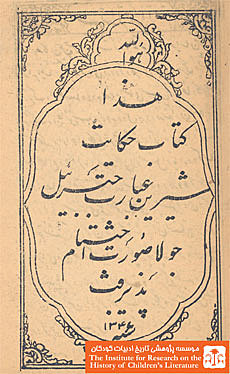 هو الله
هذا
کتاب حکایت
شیرین عبارت جبرئیل
جولا صورت اختتام
پذیرفت
۱۳۴۶
موسسه پژوهشی تاریخ ادبیات کودکان
The Institute for Research on the
History of Children's Literature